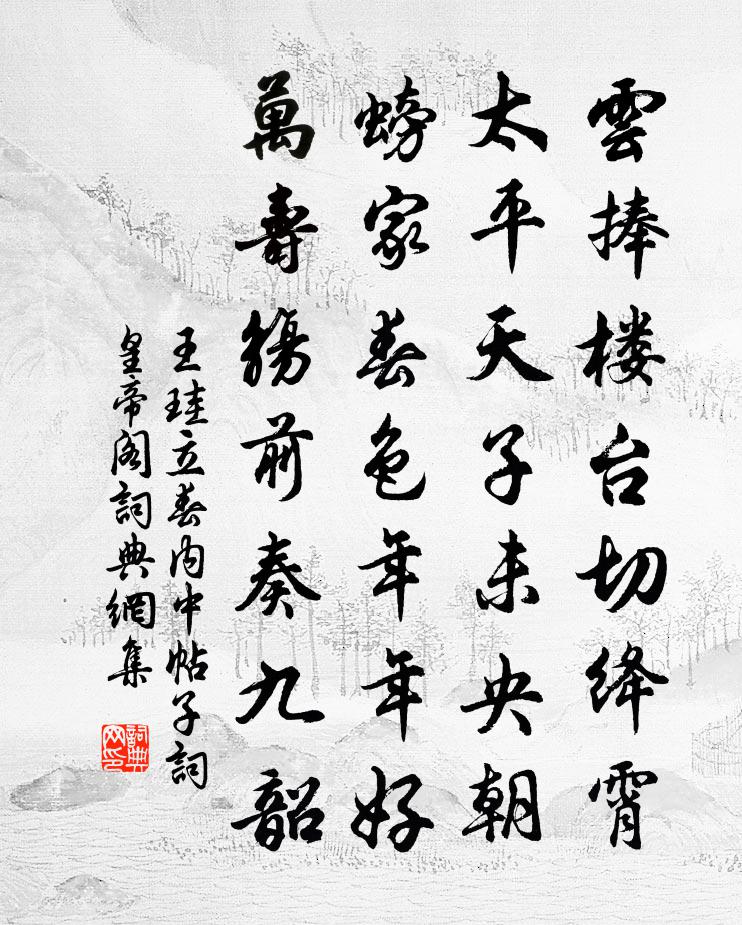 雲捧楼台切绛霄
太平天子未央朝
螃家春色年年好
萬壽觴前奏九韶
王珪立春内中帖子詞
皇帝阁詞典網集
詞典
网印